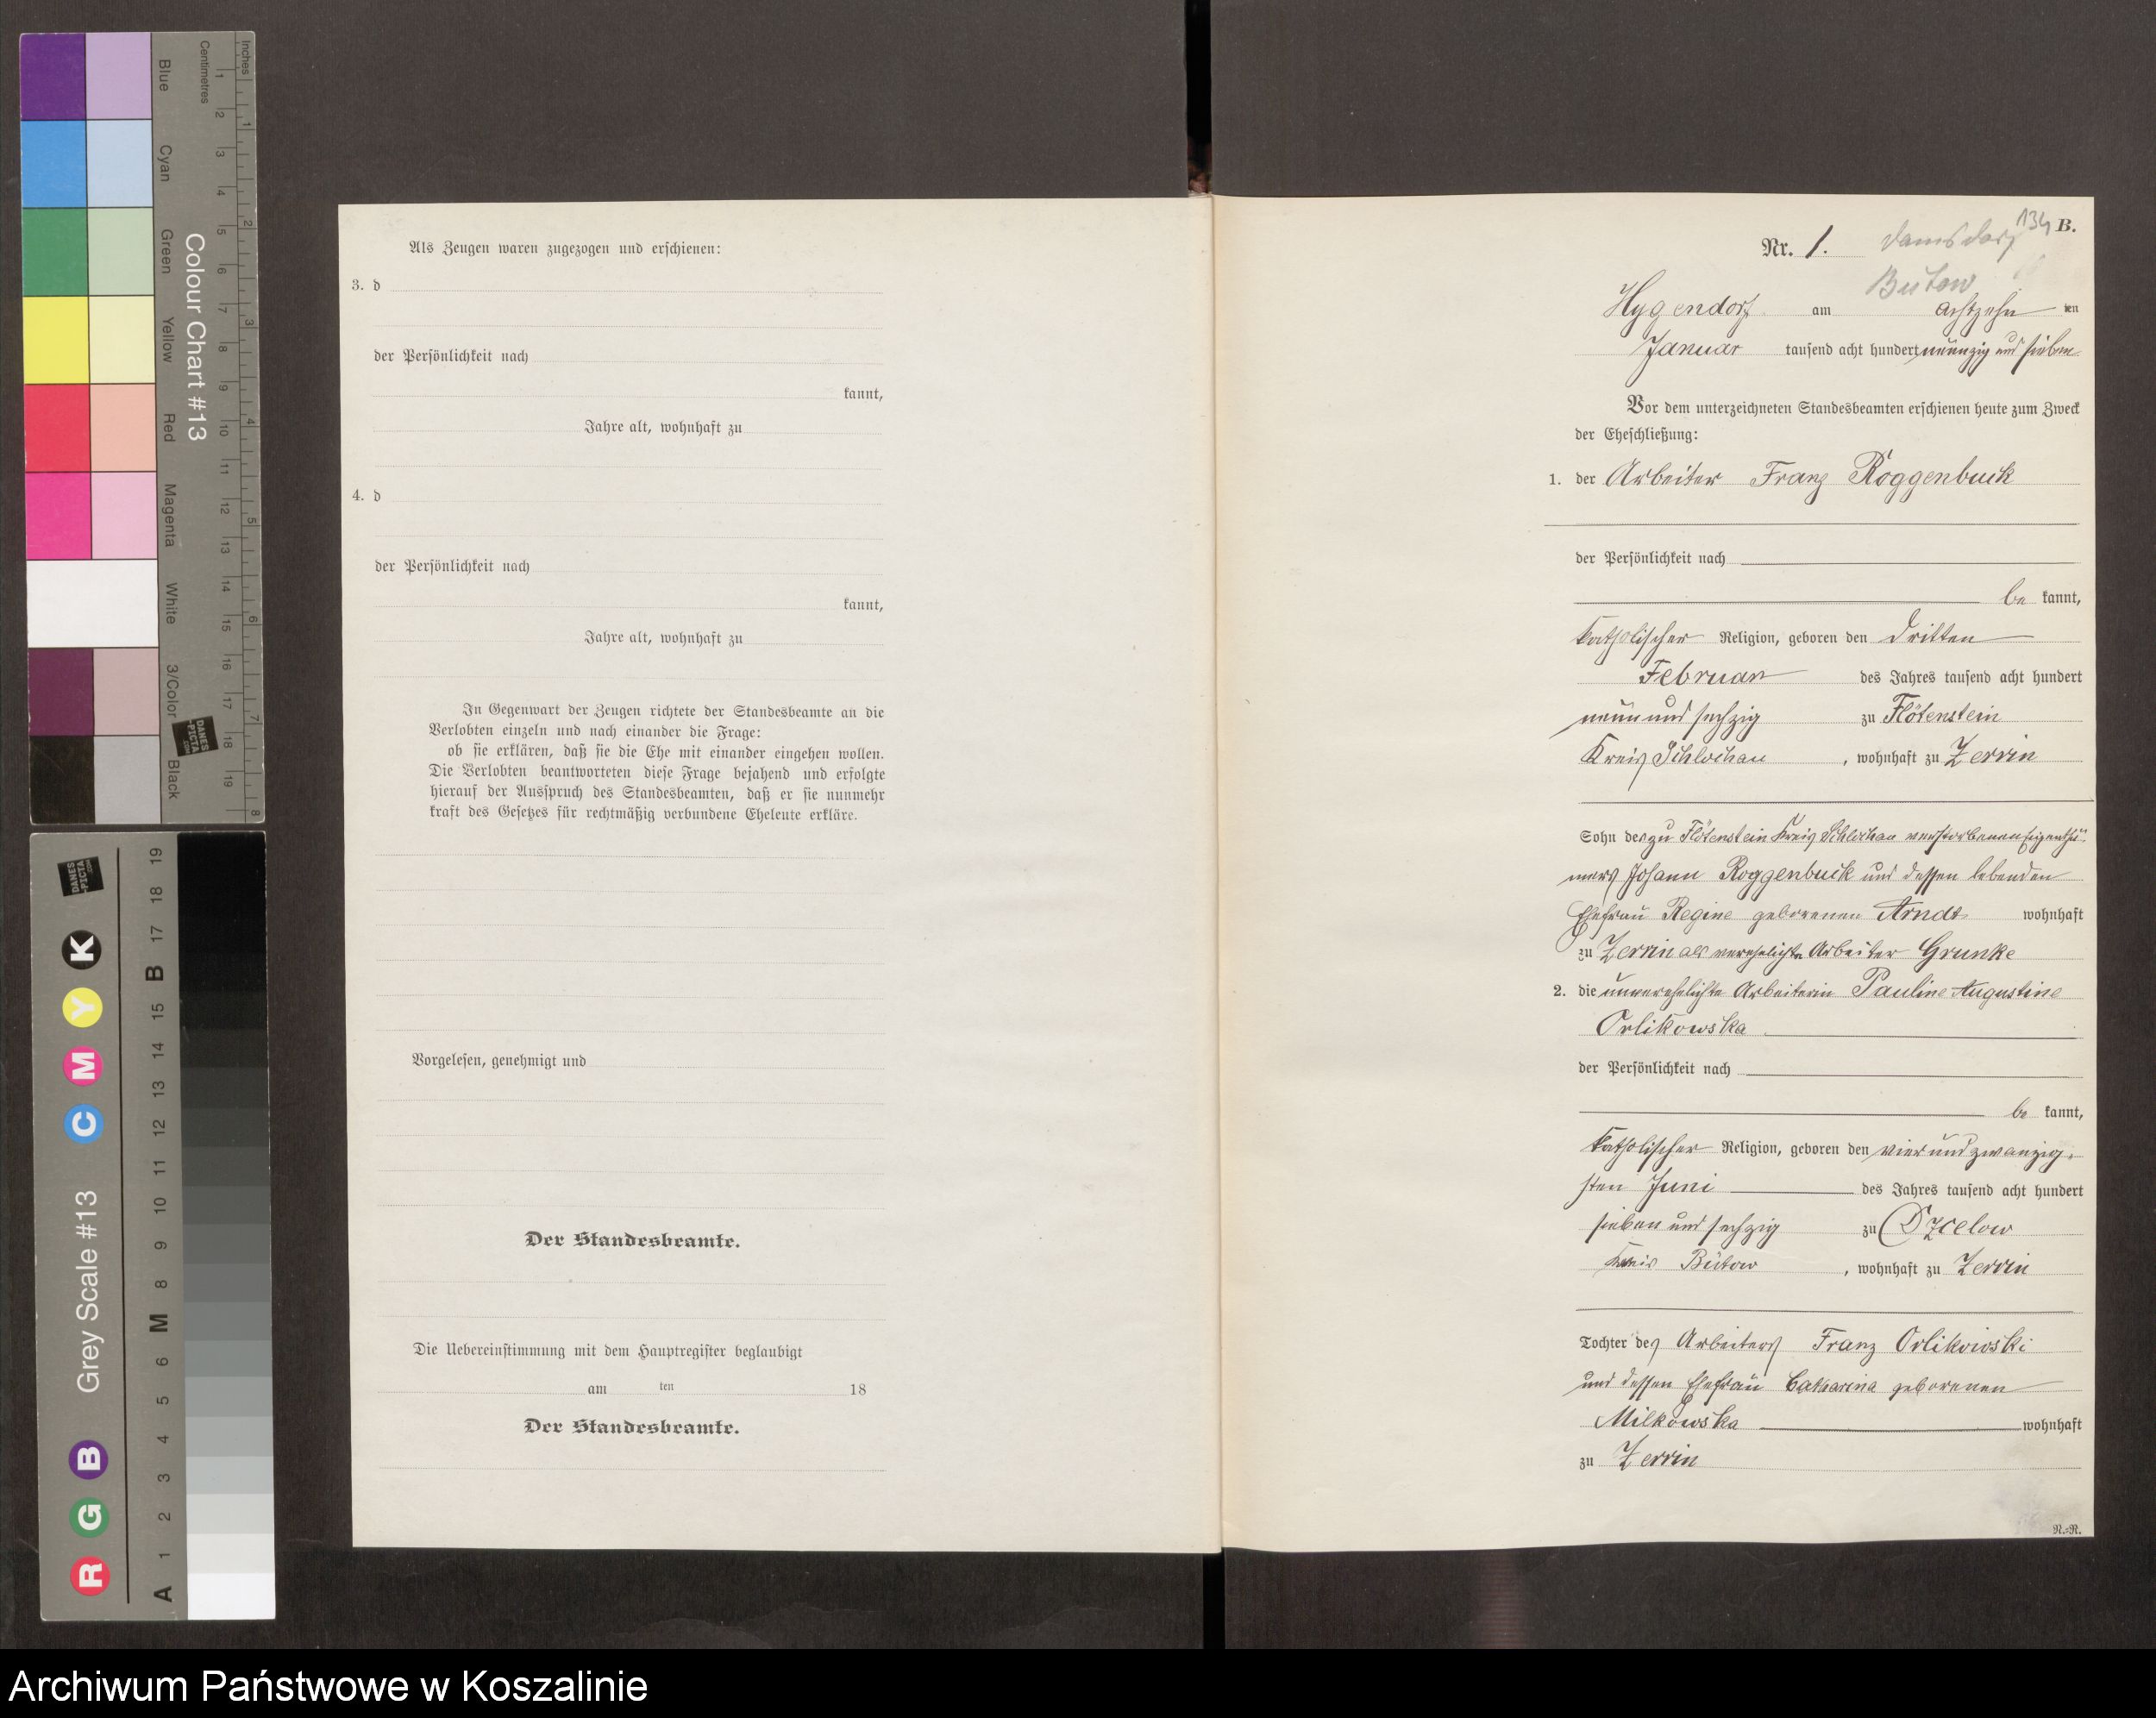 Als Zeugen waren zugezogen und erschienen:
3. d
der Persönlichkeit nach
kannt,
Jahre alt, wohnhaft zu
4. d
der Persönlichkeit nach
kannt,
Jahre alt, wohnhaft zu
In Gegenwart der Zeugen richtete der Standesbeamte an die
Verlobten einzeln und nach einander die Frage:
ob sie erklären, daß sie die Ehe mit einander eingehen wollen.
Die Verlobten beantworteten diese Frage bejahend und erfolgte
hierauf der Ausspruch des Standesbeamten, daß er sie nunmehr
kraft des Gesetzes für rechtmäßig verbundene Eheleute erkläre.
Vorgelesen, genehmigt und
Der Standesbeamte.
Die Uebereinstimmung mit dem Hauptregister beglaubigt
am ten 18
Der Standesbeamte.
134 B.
Nr. 1. Damsdorf
Bütow
Hygendorf am achtzehn ten
Januar tausend acht hundert neunzig und sieben
Vor dem unterzeichneten Standesbeamten erschienen heute zum Zweck
der Eheschließung:
1. der Arbeiter Franz Roggenbuck
der Persönlichkeit nach
be kannt,
katholischer Religion, geboren den dritten
Februar des Jahres tausend acht hundert
neun und sechzig zu Flötenstein
Kreis Schlochau, wohnhaft zu Zerrin
Sohn des zu Flötenstein Kreis Schlochau verstorbenen Eigenthü-
mers Johann Roggenbuck und dessen lebenden
Ehefrau Regine geborenen Arndt wohnhaft
zu Zerrin als verehelichte Arbeiter Grunke
2. die unverehelichte Arbeiterin Pauline Augustine
Orlikowska
der Persönlichkeit nach
be kannt,
katholischer Religion, geboren den vier und zwanzig-
sten Juni des Jahres tausend acht hundert
sieben und sechzig zu
Kreis Bütow, wohnhaft zu Zerrin
Tochter des Arbeiters Franz Orlikowski
und dessen Ehefrau Catharina geborenen
Milkowska wohnhaft
zu Zerrin
N.-R.
Inches
Centimetres
Colour Chart #13
Blue
Cyan
Green
Yellow
Red
Magenta
White
3/Color
Black
1 2 3 4 5 6 7 8 9 10 11 12 13 14 15 16 17 18 19
1 2 3 4 5 6 7 8
DANES
-PICTA
.COM
DANES
-PICTA
.COM
Grey Scale #13
R G B C M Y K
A 1 2 3 4 5 6 M 8 9 10 11 12 13 14 15 B 17 18 19
Archiwum Państwowe w Koszalinie